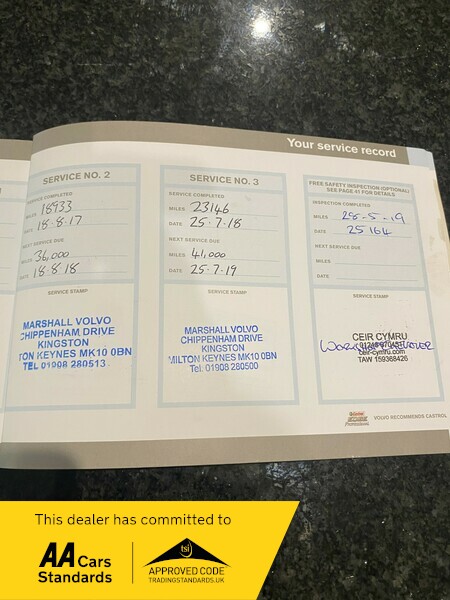 Your service record
SERVICE NO. 2
SERVICE COMPLETED
MILES 18933
DATE 18-8-17
NEXT SERVICE DUE
MILES 36,000
DATE 18-8-18
SERVICE STAMP
MARSHALL VOLVO
CHIPPENHAM DRIVE
KINGSTON
TON KEYNES MK10 0BN
TEL 01908 280513
SERVICE NO. 3
SERVICE COMPLETED
MILES 23146
DATE 25-7-18
NEXT SERVICE DUE
MILES 41,000
DATE 25-7-19
SERVICE STAMP
MARSHALL VOLVO
CHIPPENHAM DRIVE
KINGSTON
MILTON KEYNES MK10 0BN
Tel: 01908 280500
FREE SAFETY INSPECTION (OPTIONAL)
SEE PAGE 41 FOR DETAILS
INSPECTION COMPLETED
MILES 28-5-19
DATE 25164
NEXT SERVICE DUE
MILES
DATE
SERVICE STAMP
CEIR CYMRU
ceir-cymru.com
TAW 159368426
Castrol
EDGE
Professional
VOLVO RECOMMENDS CASTROL
This dealer has committed to
AA Cars
Standards
tsi
APPROVED CODE
TRADINGSTANDARDS.UK